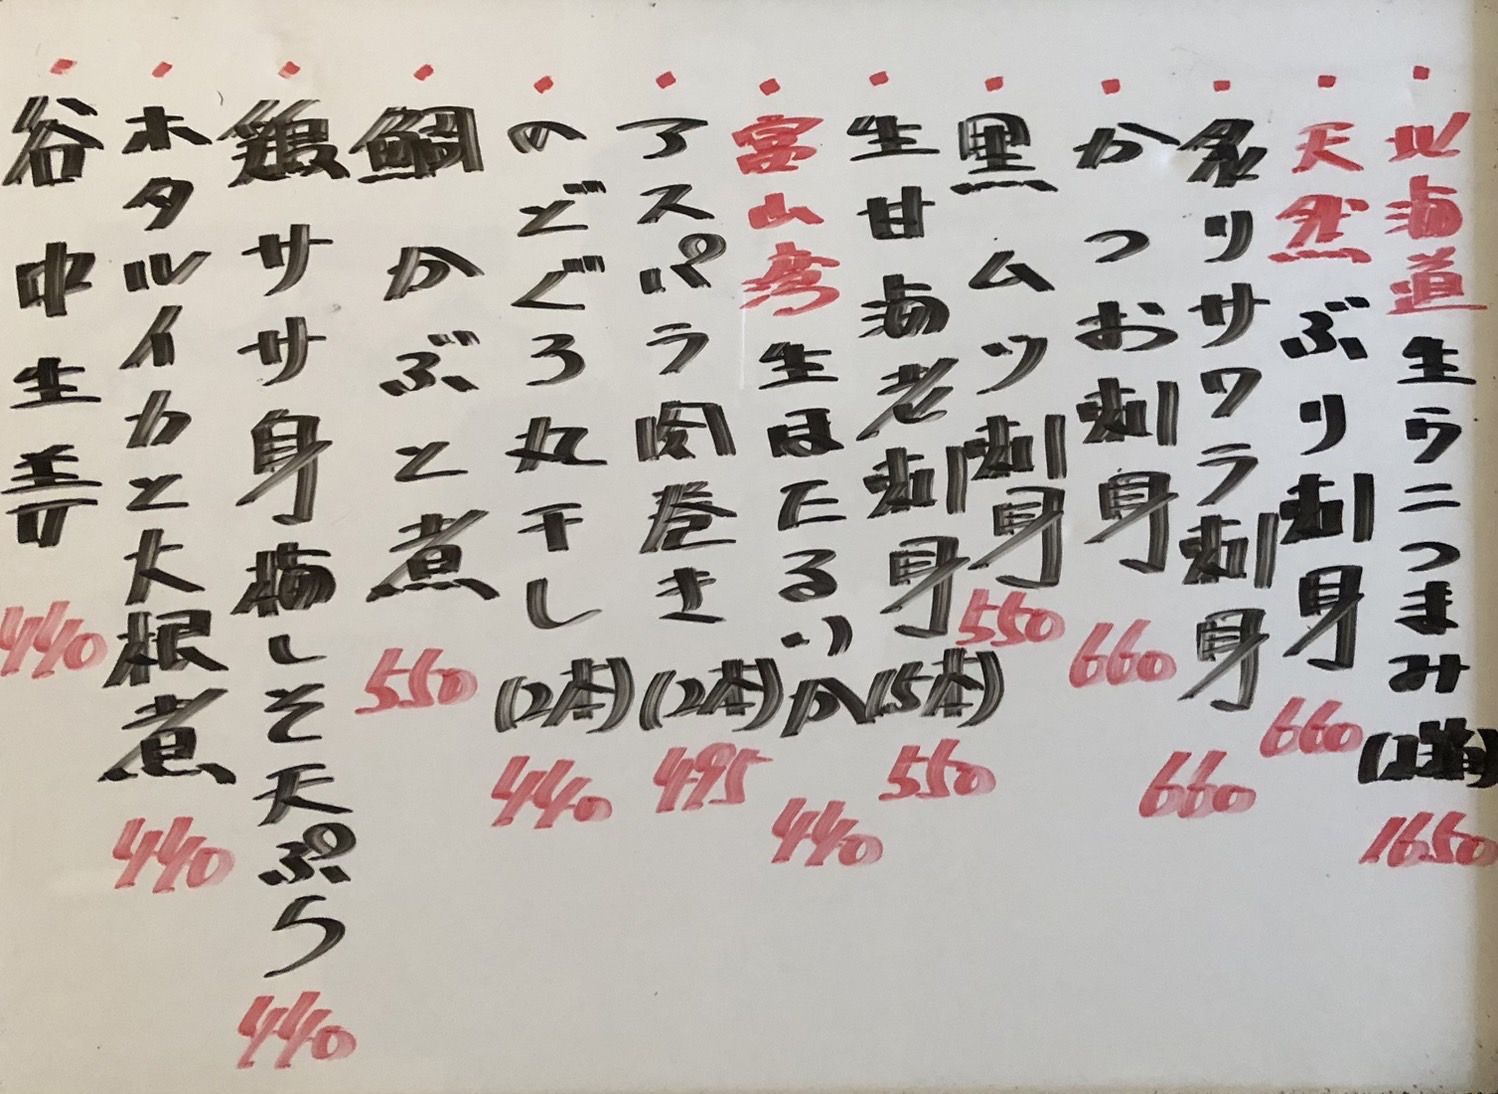 北海道生ウニつまみ(2貫)1650
天然ぶり刺身660
炙りサワラ刺身660
かつお刺身660
黒ムツ刺身550
生甘海老刺身(5本)550
富山産生ほたるいか440
アスパラ肉巻き(2本)495
のどぐろ丸干し(2本)440
鯛かぶと煮550
鶏ササ身梅しそ天ぷら440
ホタルイカと大根煮440
谷中生姜440